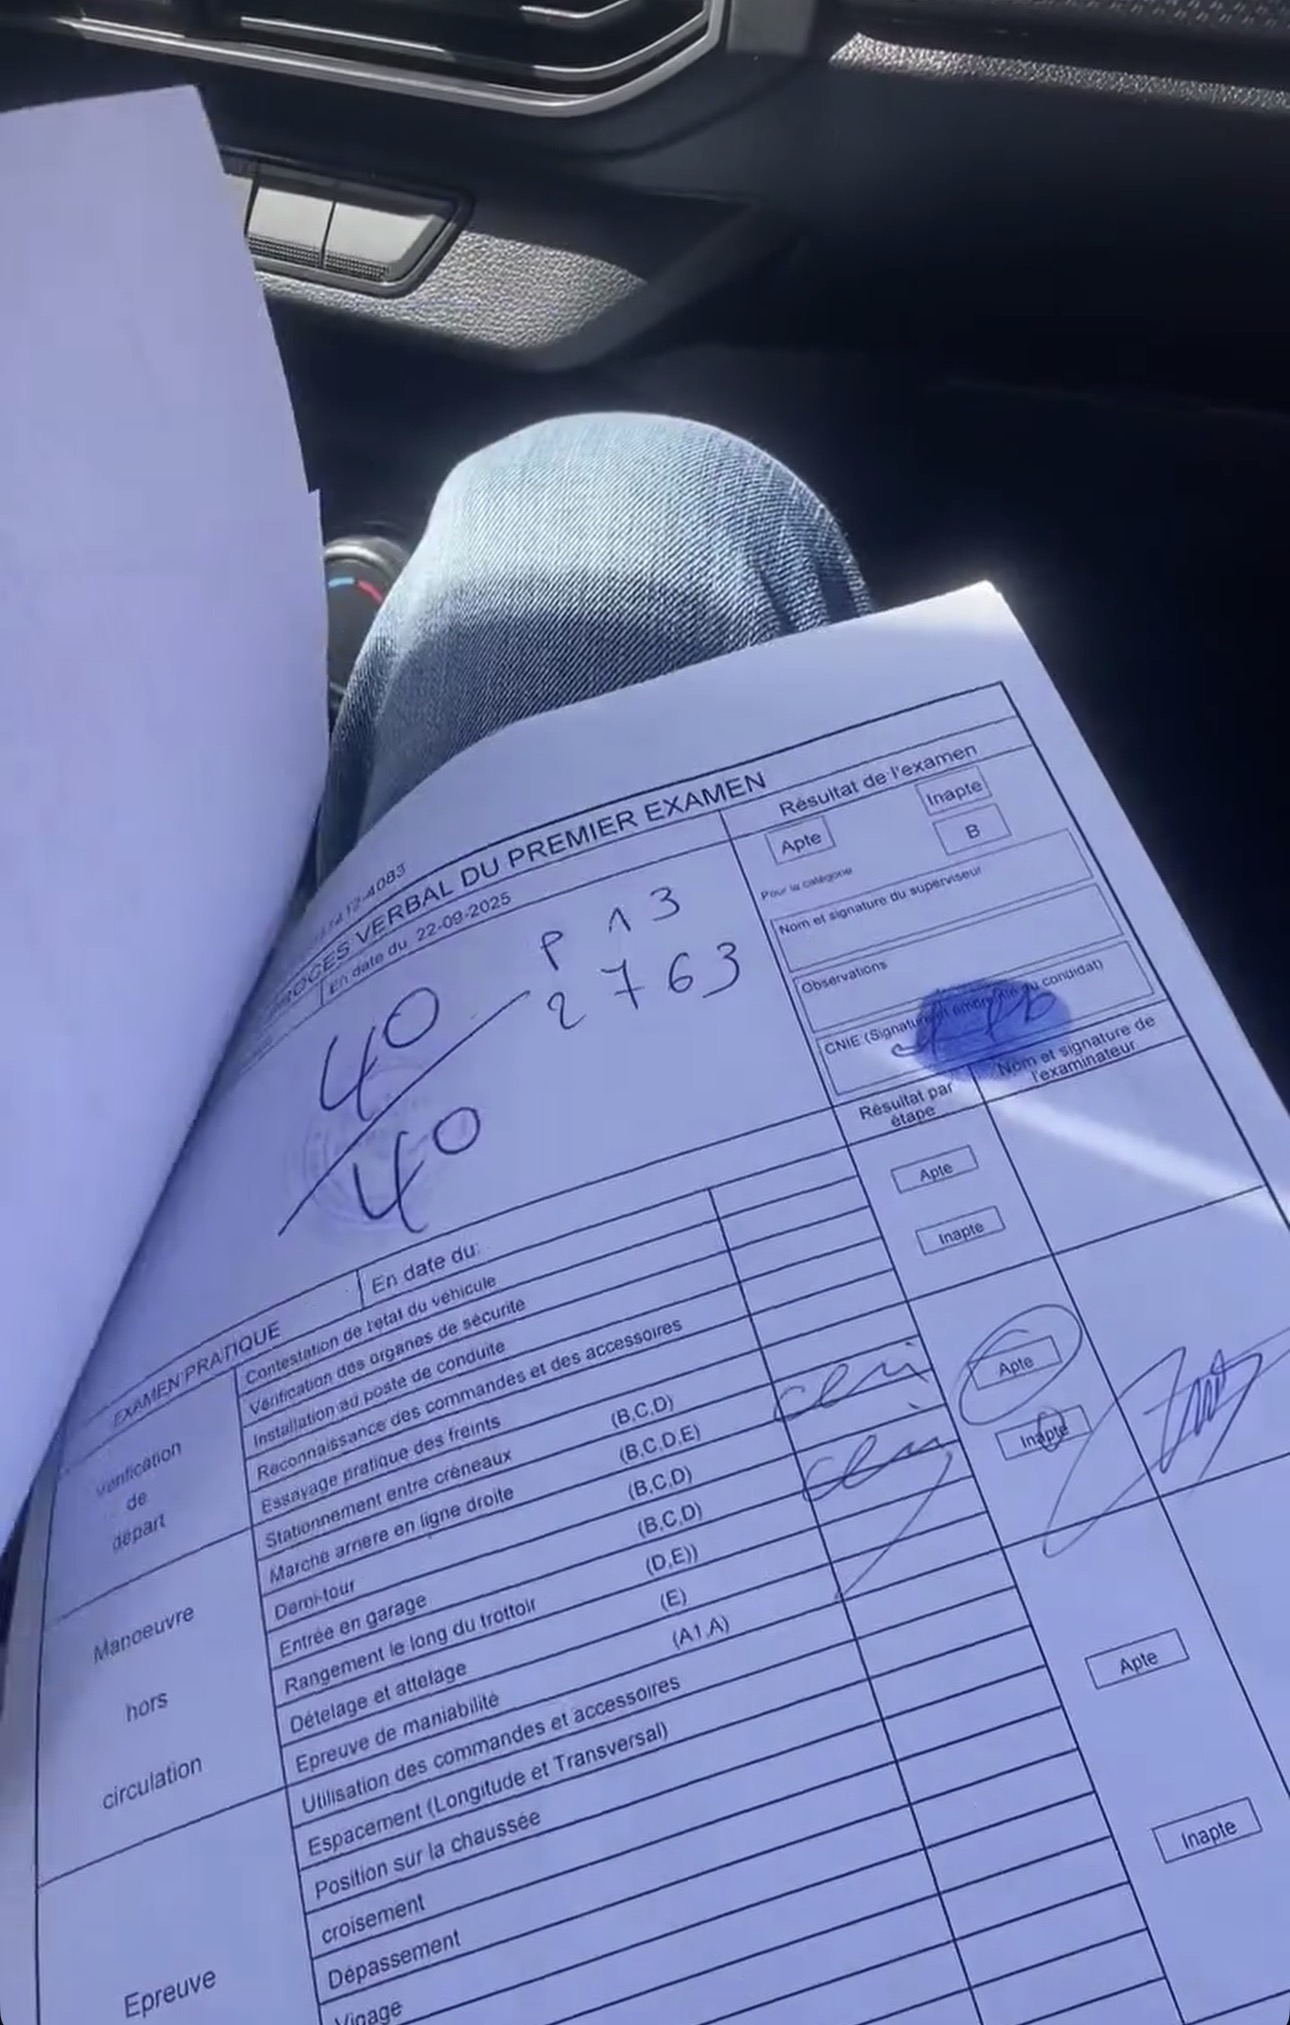 PROCES VERBAL DU PREMIER EXAMEN
En date du 22-09-2025
40
40
P 13
2763
Résultat de l'examen
Apte
Inapte
Pour la catégorie
B
Nom et signature du superviseur
Observations
CNIE (Signature et empreinte du conuidat)
Résultat par étape
Nom et signature de l'examinateur
EXAMEN PRATIQUE
En date du:
Verification de départ
Contestation de l'état du véhicule
Vérification des organes de sécurité
Installation au poste de conduite
Reconnaissance des commandes et des accessoires
Essayage pratique des freints
Apte
Inapte
Manoeuvre hors circulation
Stationnement entre créneaux (B,C,D)
Marche arriere en ligne droite (B,C,D,E)
Demi-tour (B,C,D)
Entrée en garage (B,C,D)
Rangement le long du trottoir (D,E))
Dételage et attelage (E)
Epreuve de maniabilité (A1,A)
Apte
Inapte
Epreuve
Utilisation des commandes et accessoires
Espacement (Longitude et Transversal)
Position sur la chaussée
croisement
Dépassement
Virage
Apte
Inapte